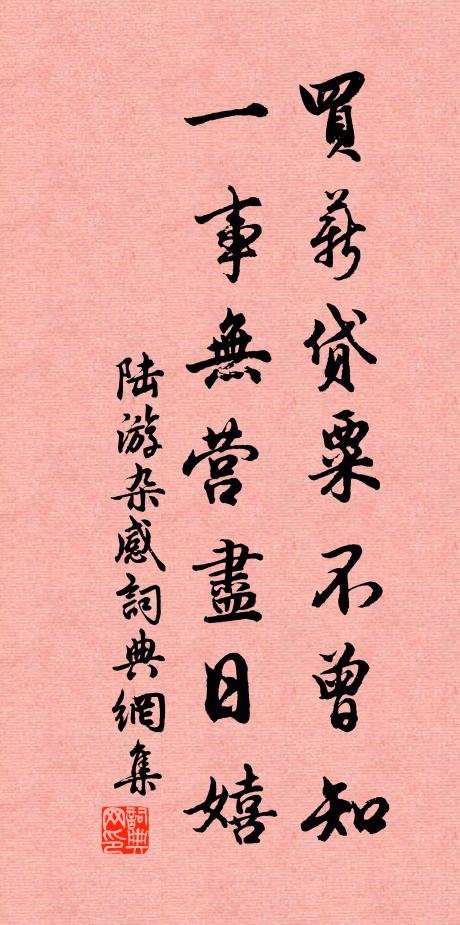 買薪貸粟不曾知
一事無营盡日嬉
陆游杂感詞典網集
詞典网印